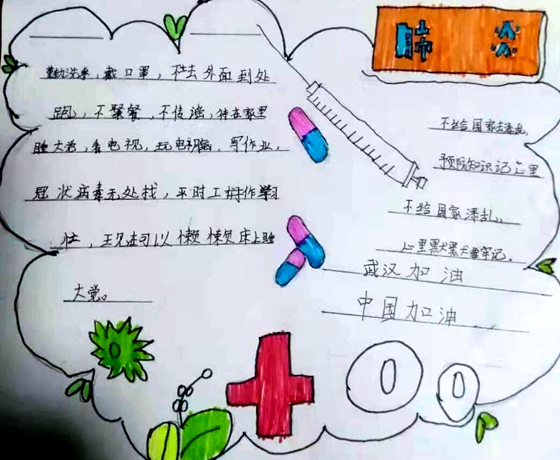 肺炎
勤洗手，戴口罩，不去外面到处
跑，不聚餐，不传谣，待在家里
睡大觉，看电视，玩电脑，写作业，
冠状病毒无处找，平时工作学习
忙，王见在可以懒懒床上睡
大觉。
不给国家去添乱，
预防知识记心里
不给国家添乱，
心里默默要牢记。
武汉加油
中国加油